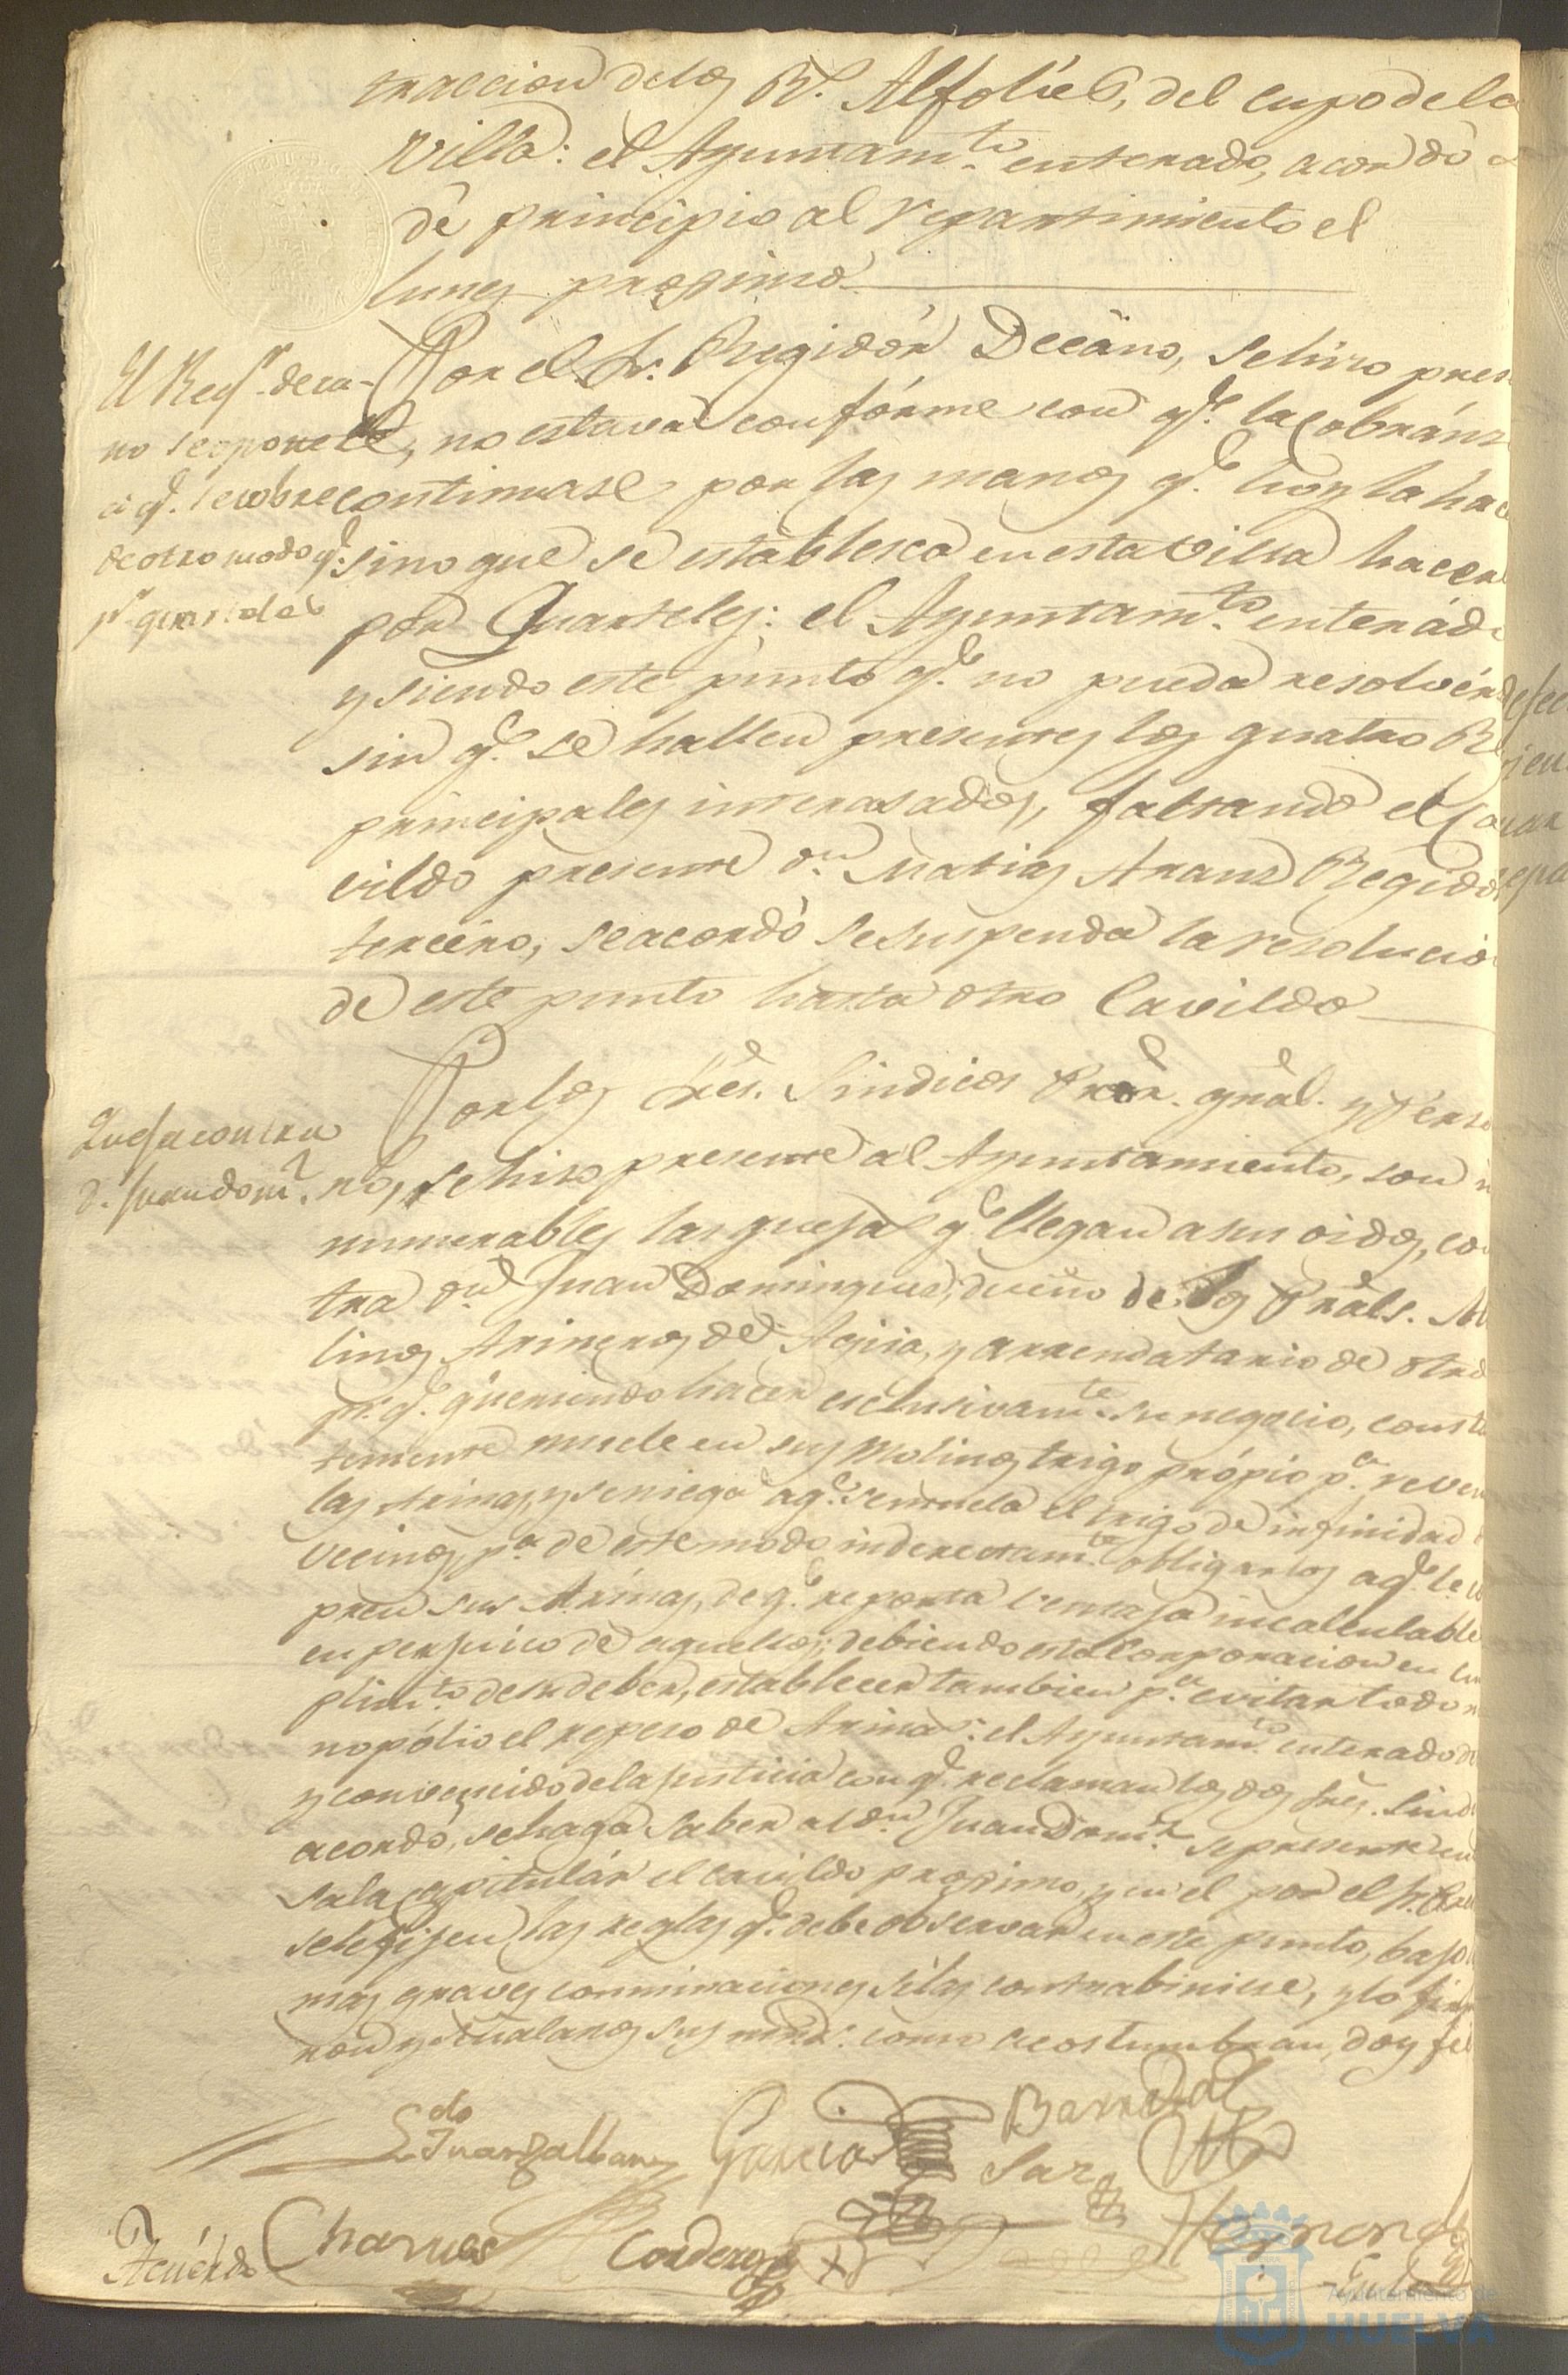 traccion de los Rs. Alfolies, del cupo de la
Villa: el Ayuntamto. enterado, acordó
dé principio al repartimiento el
lunes proximo
El Regor. deca-
no se opone
á qe. se cobre
de otro modo qe.
pr. quarteles
Por el Sr. Regidór Decáno, se hizo presen
te, no estava confórme con qe. la cobránz
continuase por las manos qe. hoy la hace
sino que se establesca en esta villa hacerl
por Quarteles: el Ayuntamto. enterádo
y siendo este punto qe. no pueda resolvér
sin qe. se hallen presentes los quatro R
principales interasados, faltando el Ca
vildo presente dn. Matias Aranz Regidor
tercéro, se acordó se suspenda la resolució
de este punto hasta otro Cavildo
Queja contra
d. Juan domz.
Por los Sres. Sindicos Pror. gral. y Perso
no, se hiso presente al Ayuntamiento, son in
numerables las quejas qe. llegan a sus oidos, con
tra dn. Juan Dominguez, dueño de los Prals. Mo
linos Arineros del Agua, y arrendatario de otro
pr. qe. queriendo hacer esclusivamte. su negocio, const
temente muele en sus Molinos trigo própio pa. reven
las Arinas, y se niega a qe. se muela el trigo de infinidad d
vecinos, pa. de este modo inderectamte. obligarlos a qe. le co
pren sus Arinas, de qe. reporta ventaja incalculable
en perjuicio de aquellos; debiendo esta Corporacion en cu
plimto. de su deber, establecer tambien pa. evitar todo m
nopólio el repeso de Arinas: el Ayuntamto. enterado de
y convencido de la justicia con qe. reclaman los dos Sres. Sind
acordó, se haga saber al dn. Juan Domz. se presente en
sala capitulár el cavildo proximo, y en el por el Sr. Pres
se le fijen las reglas qe. debe observar en este punto, bajo l
mas graves conminaciones si las contrabiniese, y lo firm
ron y señalaron sus mrds. como acostumbran, doy fé
Ldo.
Garcia
Barredal
Saz
Charues
Cordero
Acuérdo
Ayuntamiento de
HUELVA